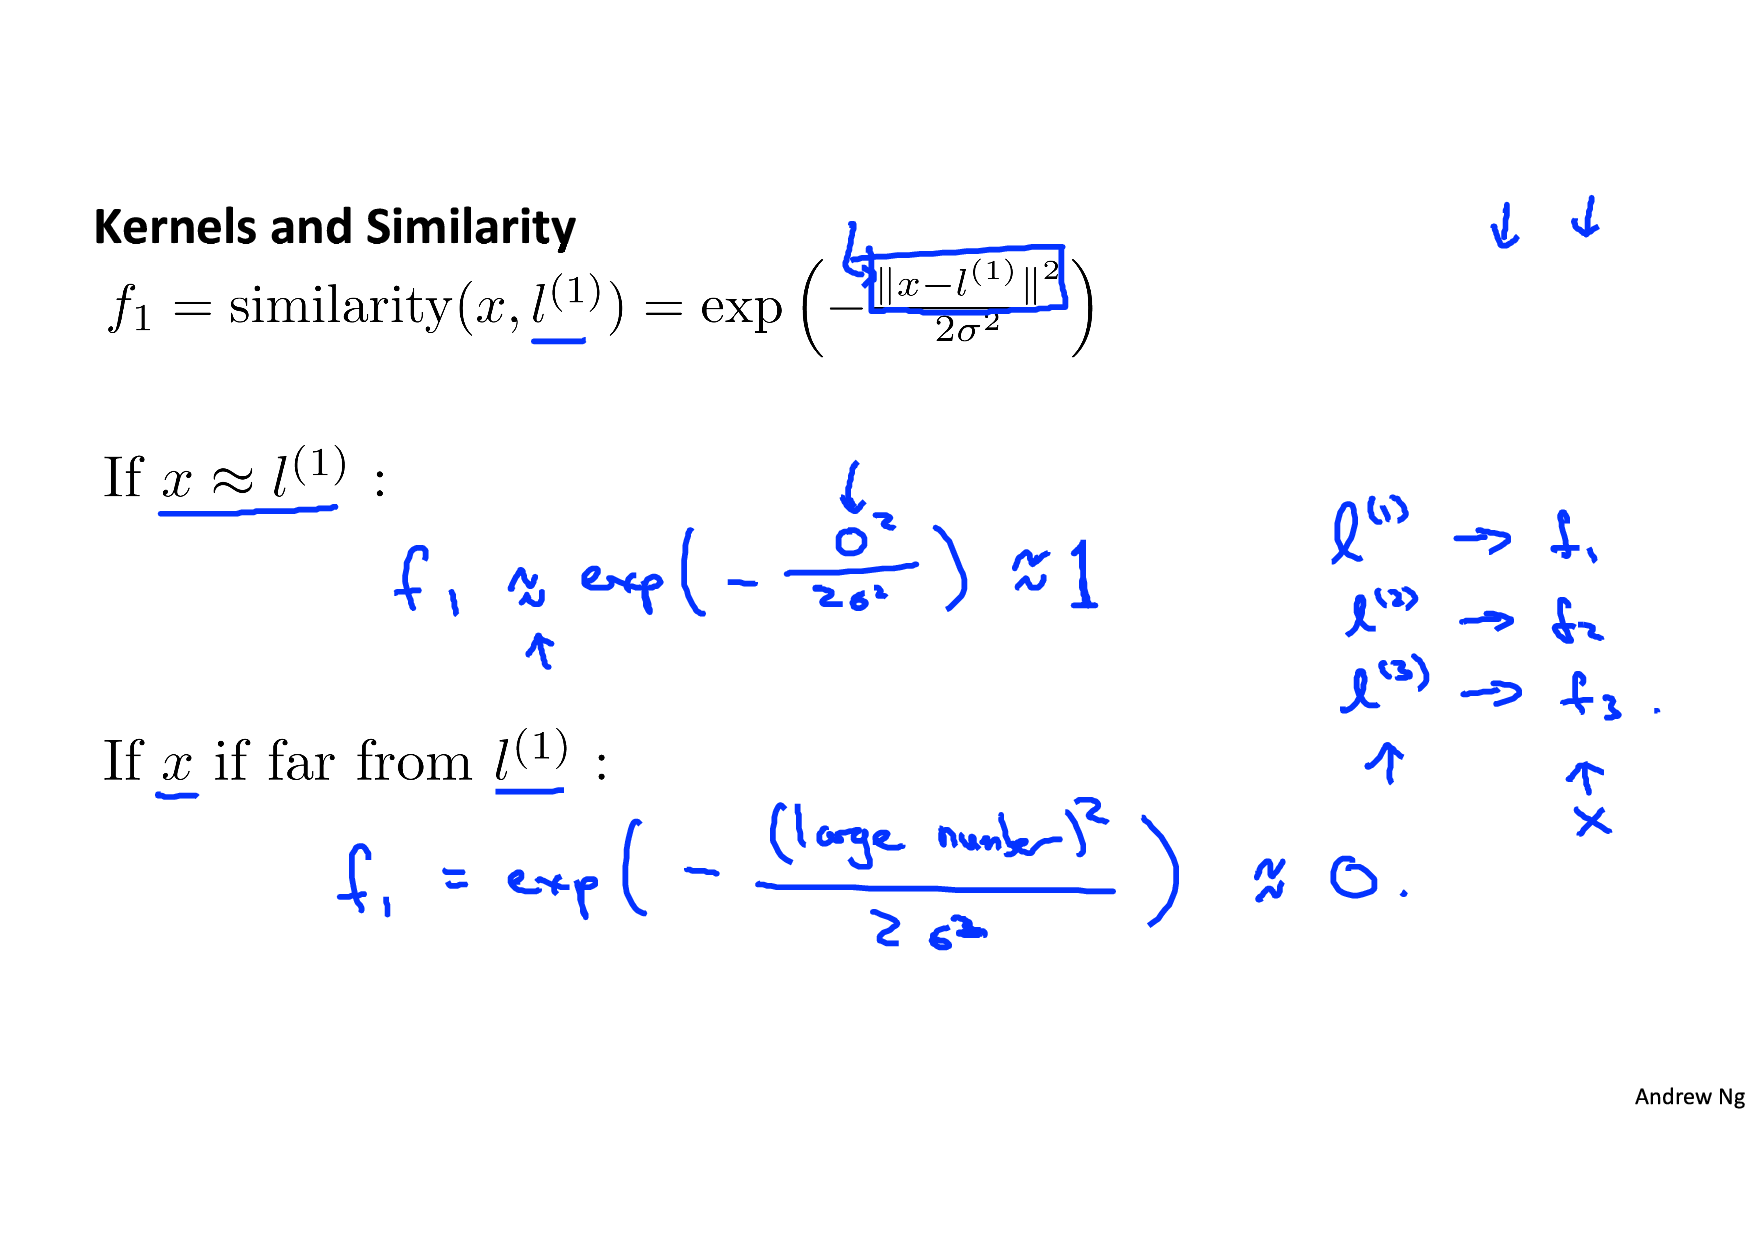 Kernels and Similarity
f₁ = similarity(x, l⁽¹⁾) = exp(−‖x−l⁽¹⁾‖²/2σ²)
If x ≈ l⁽¹⁾ :
f₁ ≈ exp(− 0²/2σ²) ≈ 1
l⁽¹⁾ → f₁
l⁽²⁾ → f₂
l⁽³⁾ → f₃ .
x
If x if far from l⁽¹⁾ :
f₁ = exp(− (large number)²/2σ²) ≈ 0.
Andrew Ng